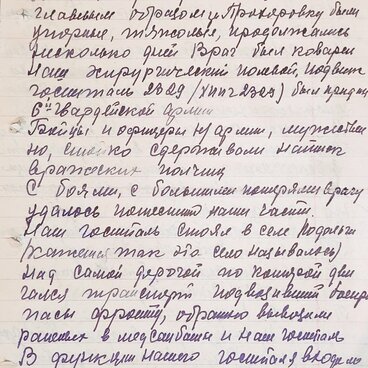 главным образом у Прохоровку были
упорные, тяжелые, продолжались
несколько дней Враг был коварен
Наш хирургический полевой, подвиж
госпиталь 2329 (ХППГ 2329) был придан
6й Гвардейской армии
Бойцы и офицеры армии, мужествен
но, стойко сдерживали натиск
вражеских полчищ
С боями, с большими потерями врагу
удалось потеснить наши части.
Наш госпиталь стоял в селе Подольхи
(кажется так это село называлось)
над самой дорогой по которой дви
гался транспорт подвозивший боепри
пасы фронту, обратно вывозили
раненых в медсанбаты и наш госпиталь
В функции нашего госпиталя входило